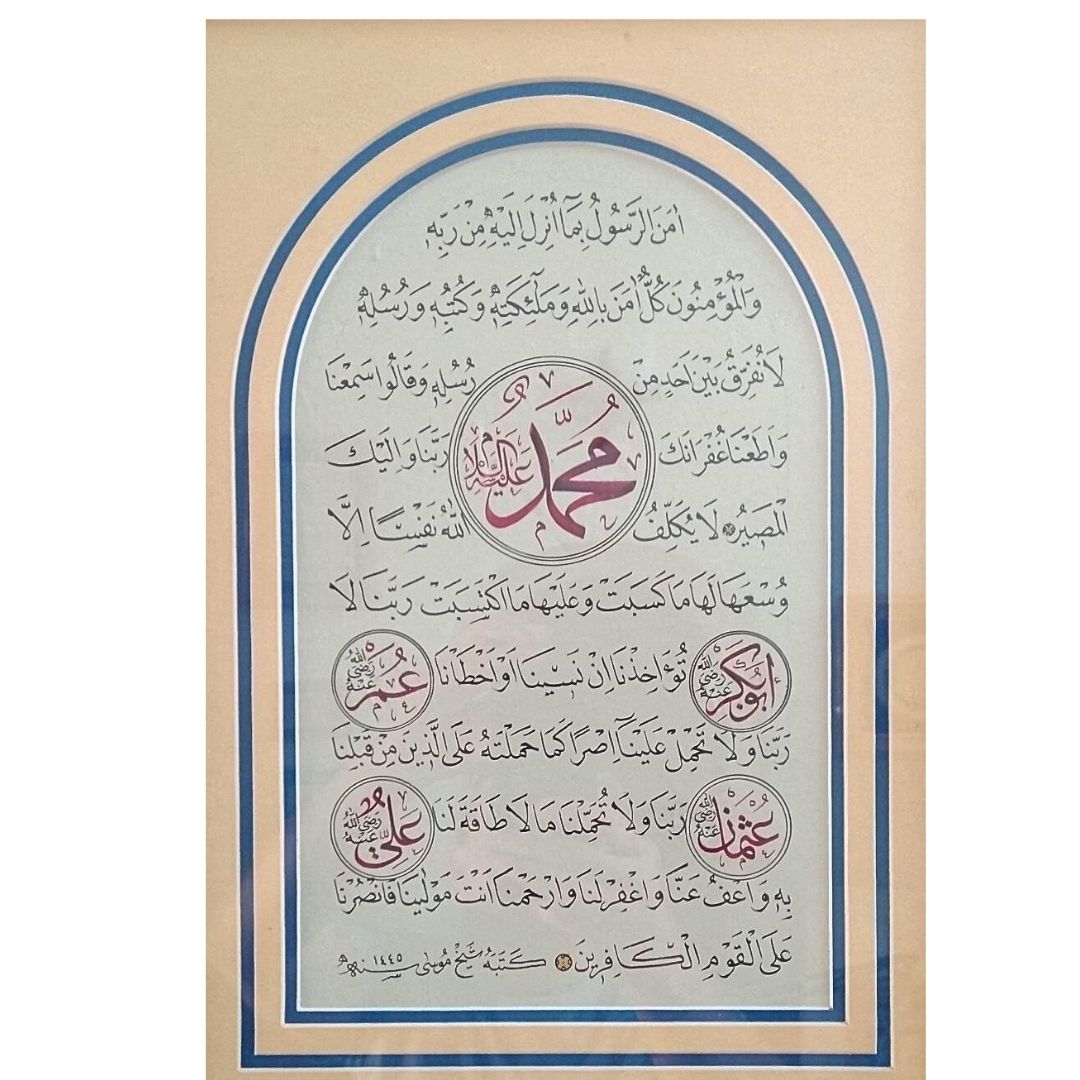 اٰمَنَ الرَّسُولُ بِمَآ اُنْزِلَ اِلَيْهِ مِنْ رَبِّهٖ
وَالْمُؤْمِنُونَ كُلٌّ اٰمَنَ بِاللّٰهِ وَمَلٰٓئِكَتِهٖ وَكُتُبِهٖ وَرُسُلِهٖ
لَا نُفَرِّقُ بَيْنَ اَحَدٍ مِنْ رُسُلِهٖ وَقَالُوا سَمِعْنَا
مُحَمَّدٌ عَلَيْهِ السَّلَامُ
وَاَطَعْنَا غُفْرَانَكَ رَبَّنَا وَاِلَيْكَ
الْمَصِيرُ لَا يُكَلِّفُ اللّٰهُ نَفْسًا اِلَّا
وُسْعَهَا لَهَا مَا كَسَبَتْ وَعَلَيْهَا مَا اكْتَسَبَتْ رَبَّنَا لَا
أَبُو بَكْر رَضِيَ اللّٰهُ عَنْهُ
تُؤَاخِذْنَا اِنْ نَسِينَا اَوْ اَخْطَاْنَا
عُمَر رَضِيَ اللّٰهُ عَنْهُ
رَبَّنَا وَلَا تَحْمِلْ عَلَيْنَآ اِصْرًا كَمَا حَمَلْتَهُ عَلَى الَّذِينَ مِنْ قَبْلِنَا
عُثْمَان رَضِيَ اللّٰهُ عَنْهُ
رَبَّنَا وَلَا تُحَمِّلْنَا مَا لَا طَاقَةَ لَنَا
عَلِيّ رَضِيَ اللّٰهُ عَنْهُ
بِهٖ وَاعْفُ عَنَّا وَاغْفِرْ لَنَا وَارْحَمْنَا اَنْتَ مَوْلٰينَا فَانْصُرْنَا
عَلَى الْقَوْمِ الْكَافِرِينَ كَتَبَهُ شَيْخ مُوسٰى سنه ١٤٤٥